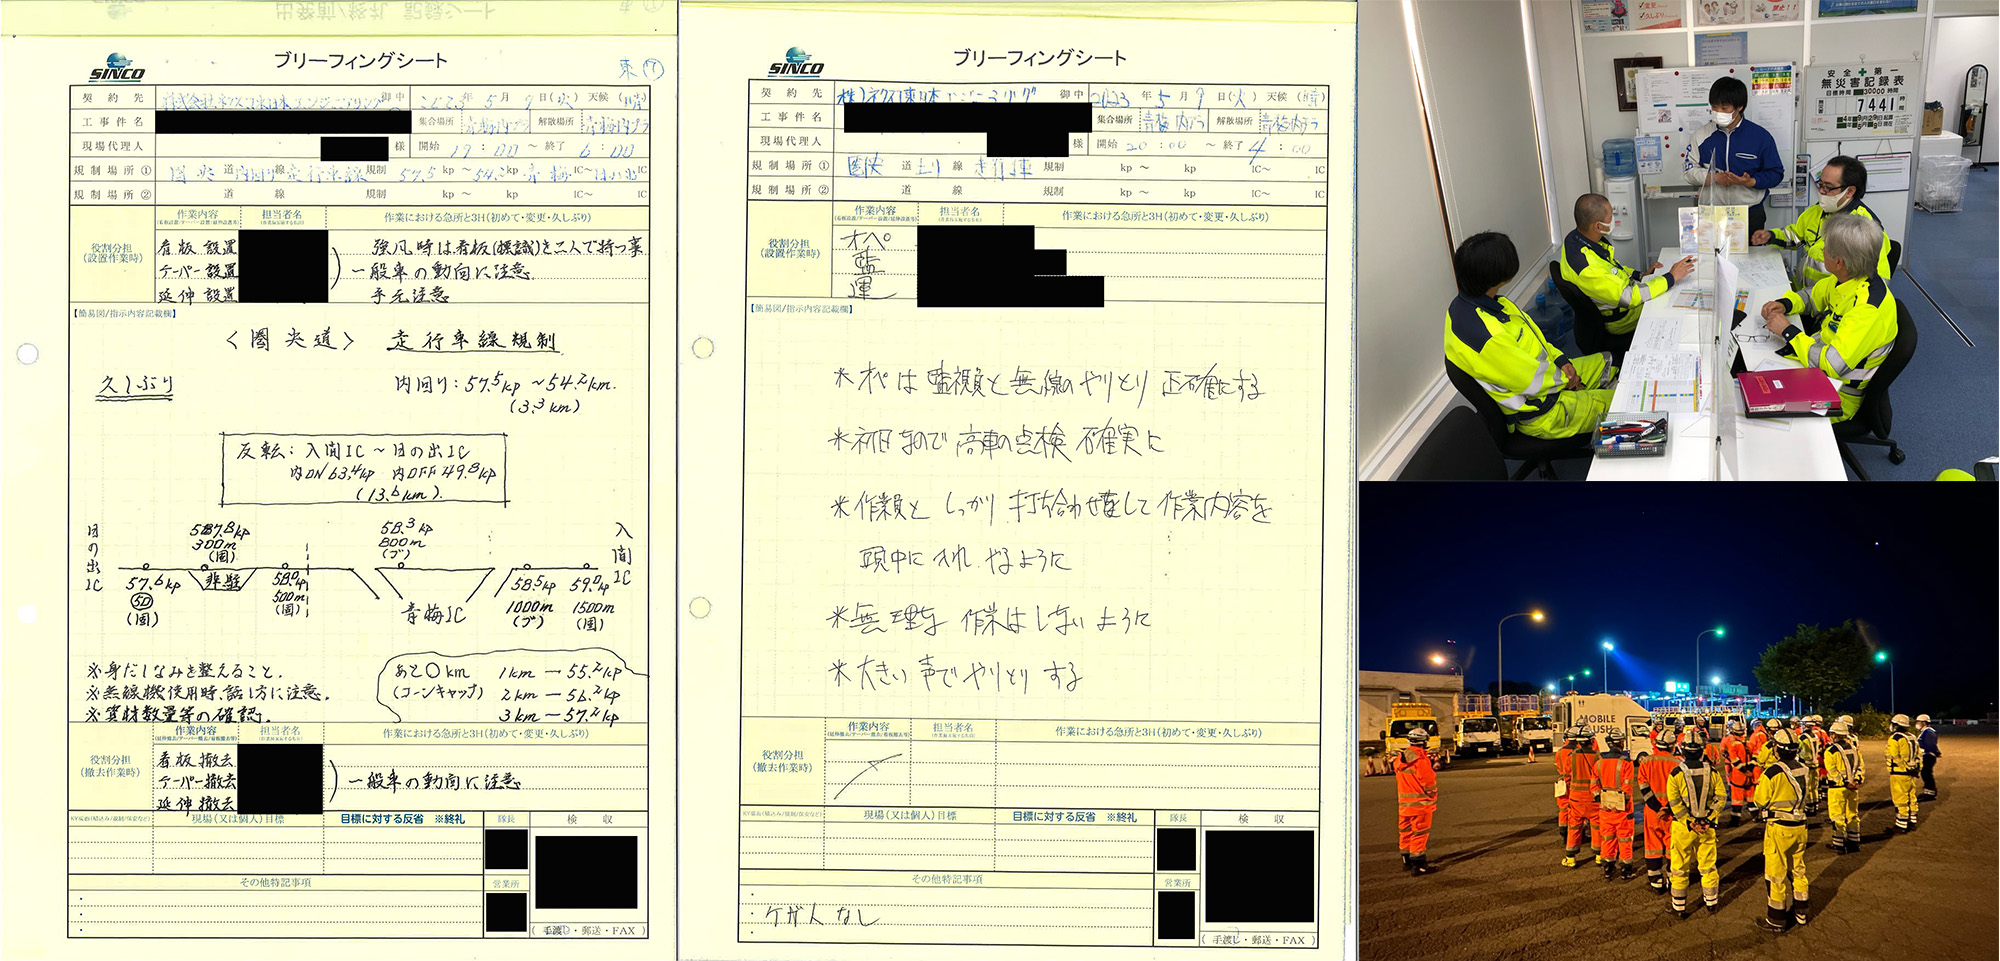 SINCO
ブリーフィングシート
東⑦
契約先 株式会社ネクスコ東日本エンジニアリング 御中 2023年5月9日(火) 天候(晴)
工事件名 集合場所 青梅内プラ 解散場所 青梅内プラ
現場代理人 様 開始 19:00 ~ 終了 6:00
規制場所① 圏央道 内回り線 走行車線 規制 57.5kp ~ 54.2kp 青梅IC~ IC
規制場所② 道 線 規制 kp ~ kp IC~ IC
役割分担(設置作業時)
作業内容 担当者名 作業における急所と3H(初めて・変更・久しぶり)
看板設置 強風時は看板(標識)を二人で持つ事
テーパー設置 一般車の動向に注意
延伸設置 手元注意
【簡易図/指示内容記載欄】
<圏央道> 走行車線規制
久しぶり
内回り:57.5kp~54.2km.
(3.3km)
反転:入間IC~日の出IC
内ON63.4kp 内OFF49.8kp
(13.6km).
日の出IC
587.8kp
300m
(固)
58.3kp
800m
(ブ)
入間IC
57.6kp
50
(固)
非駐
58.0kp
500m
(固)
青梅IC
58.5kp
1000m
(ブ)
59.0kp
1500m
(固)
※身だしなみを整えること.
※無線機使用時、話し方に注意.
※資材数量等の確認.
あと〇km
(コーンキャップ)
1km — 55.2kp
2km — 56.2kp
3km — 57.2kp
役割分担(撤去作業時)
作業内容 担当者名 作業における急所と3H(初めて・変更・久しぶり)
看板撤去
テーパー撤去 一般車の動向に注意
延伸撤去
現場(又は個人)目標 目標に対する反省 ※終礼 隊長 検収
その他特記事項 営業所
(手渡し・郵送・FAX)
SINCO
ブリーフィングシート
契約先 株)ネクスコ東日本エンジニアリング 御中 2023年5月9日(火) 天候(晴)
工事件名 集合場所 青梅内プラ 解散場所 青梅内プラ
現場代理人 様 開始 20:00 ~ 終了 4:00
規制場所① 圏央道 線 走行車線 規制 kp ~ kp IC~ IC
規制場所② 道 線 規制 kp ~ kp IC~ IC
役割分担(設置作業時)
作業内容 担当者名 作業における急所と3H(初めて・変更・久しぶり)
オペ
監
運
【簡易図/指示内容記載欄】
*オペは監視員と無線のやりとり正確にする
*初日なので高車の点検確実に
*作業員としっかり打ち合わせをして作業内容を
頭中に入れやるように
*無理な作業はしないように
*大きい声でやりとりする
役割分担(撤去作業時)
作業内容 担当者名 作業における急所と3H(初めて・変更・久しぶり)
現場(又は個人)目標 目標に対する反省 ※終礼 隊長 検収
その他特記事項 営業所
・ケガ人なし
(手渡し・郵送・FAX)
安全+第一
無災害記録表
目標時間 30000時間
7441時
MOBILE